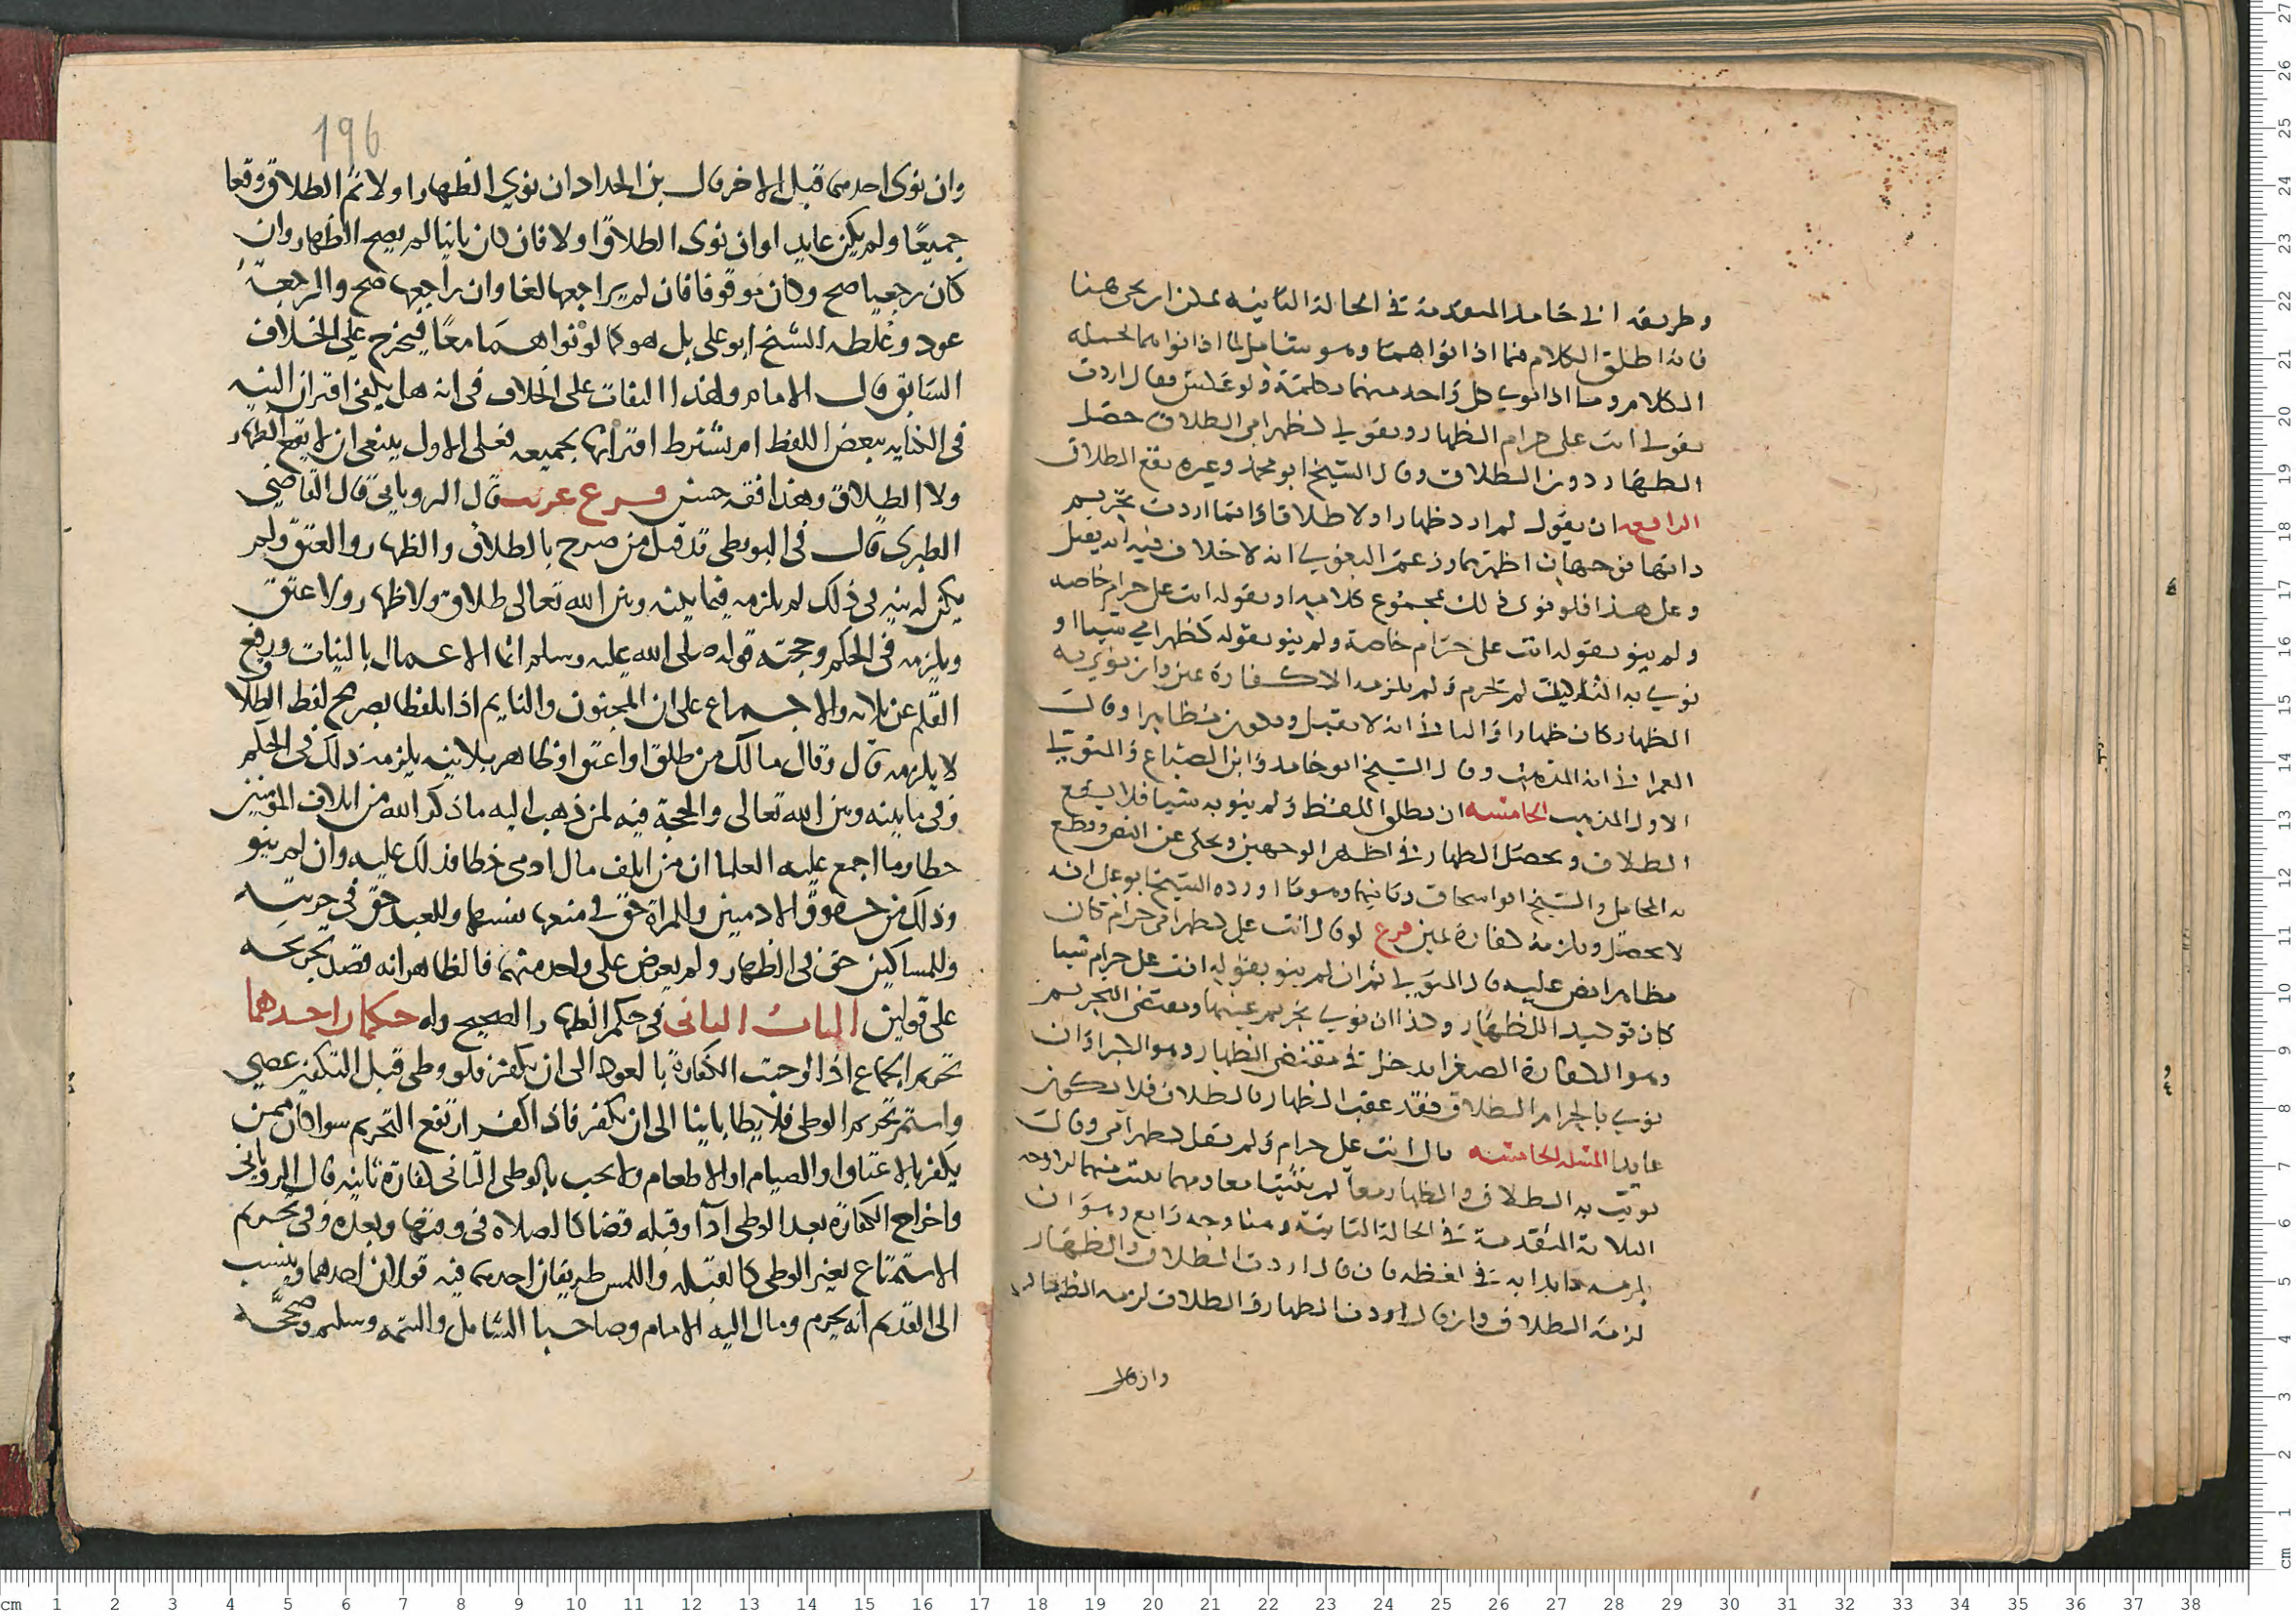 وطريقه ابي حامد المتقدمة في الحالة الثانيه يمكن ان تجي هنا
فانه اطلق الكلام فيما اذا نواهما وهو شامل لما اذا نواهما بجمله
الكلام وما اذا نوى كل واحد منهما بكلمة ولو عكس فقال اردت
بقولي انت علي حرام الظهار وبقولي كظهر امي الطلاق حصل
الظهار دون الطلاق وقال الشيخ ابو محمد وغيره يقع الطلاق
الرابعه ان يقول لم ارد ظهارا ولا طلاقا وانما اردت تحريم
ذاتها فوجهان اظهرهما وزعم البغوي انه لا خلاف فيه انه يقبل
وعلى هذا فلو نوى ذلك بمجموع كلاميه او بقوله انت علي حرام خاصه
ولم ينو بقوله انت علي حرام خاصة ولم ينو بقوله كظهر امي شيا او
نوى به التاكيد لم تحرم ولم يلزمه الا كفارة يمين وان نوى به
الظهار كان ظهارا والثاني انه لا يقبل ويكون مظاهرا وقال
العمراني انه المذهب وقال الشيخ ابو حامد وابن الصباغ والمتولي
الاول المذهب الخامسه ان يطلق اللفظ ولم ينو به شيا فلا يقع
الطلاق ويحصل الظهار في اظهر الوجهين ويحكى عن النص وقطع
به المحاملي والشيخ ابو اسحاق وثانيهما وهو ما اورده الشيخ ابو علي انه
لا يحصل ويلزمه كفارة يمين فرع لو قال انت علي كظهر امي حرام كان
مظاهرا نص عليه قال المتولي ثم ان لم ينو بقوله انت علي حرام شيا
كان توكيدا للظهار وكذا ان نوى تحريم عينها ومقتضى التحريم
وهو الكفارة الصغرا يدخل في مقتضى الظهار وهو الكبرا وان
نوى بالحرام الطلاق فقد عقب الظهار بالطلاق فلا يكون
عايدا المسله الخامسه قال انت علي حرام ولم يقل كظهر امي وقال
نويت به الطلاق والظهار معا لم يثبتا معا وهما يثبت منهما الاوجه
الثلاثة المتقدمة في الحالة الثانية وهنا وجه رابع وهو ان
يلزمه ما بدا به في لفظه فان قال اردت الطلاق والظهار
لزمه الطلاق وان قال اردت الظهار والطلاق لزمه الظهار
وان قال
196
وان نوى احدهما قبل الاخر قال بن الحداد ان نوي الظهار اولا ثم الطلاق وقعا
جميعًا ولم يكن عايدا وان نوى الطلاق اولا فان كان باينا لم يصح الظهار وان
كان رجعيا صح وكان موقوفا فان لم يراجعها لغا وان راجعها صح والرجعة
عود وغلطه الشيخ ابو علي بل هو كما لو نواهما معًا فيخرج على الخلاف
السابق قال الامام ولهذا التفات على الخلاف في انه هل يكفي اقتران النيه
في الكنايه ببعض اللفظ ام يشترط اقترانها بجميعه فعلى الاول ينبغي ان لا يقع الظهار
ولا الطلاق وهذا فقه حسن فرع غريب قال الروياني قال القاضي
الطبري قال في البويطي قد قيل من صرح بالطلاق والظهار والعتق ولم
يكن له نيه في ذلك لم يلزمه فيما بينه وبين الله تعالى طلاق ولا ظهار ولا عتق
ويلزمه في الحكم وحجته قوله صلى الله عليه وسلم انما الاعمال بالنيات ورفع
القلم عن ثلاثه والاجماع على ان المجنون والنايم اذا تلفظا بصريح لفظ الطلاق
لا يلزمه قال وقال مالك من طلق او اعتق او ظاهر بلا نيه يلزمه ذلك في الحكم
وفي ما بينه وبين الله تعالى والحجة فيه لمن ذهب اليه ما ذكر الله من اتلاف المؤمنين
خطا وما اجمع عليه العلما ان من اتلف مال ادمي خطا فذلك عليه وان لم ينو
وذلك من حقوق الادميين وللمراة حق في منعها نفسها وللعبد حق في حريته
وللمساكين حق في الظهار ولم يعوض على واحد منهما فالظاهر انه قصد تخريجه
على قولين الباب الثاني في حكم الظهار الصحيح وله حكمان احدهما
تحريم الجماع اذا اوجبت الكفارة بالعود الى ان يكفر فلو وطى قبل التكفير عصى
واستمر تحريم الوطى فلا يطا ثانيا الى ان يكفر فاذا كفر ارتفع التحريم سوا كان ممن
يكفر بالاعتاق او الصيام او الاطعام ولا تجب بالوطى الثاني كفارة ثانيه قال الروياني
واخراج الكفارة بعد الوطى آدا وقبله قضا كالصلاه في وقتها وبعده وفي تحريم
الاستمتاع بغير الوطى كالقبله واللمس طريقان احدهما فيه قولان احدهما وينسب
الى القديم انه يحرم ومال اليه الامام وصاحبا الشامل والتتمه وسليم وصححه